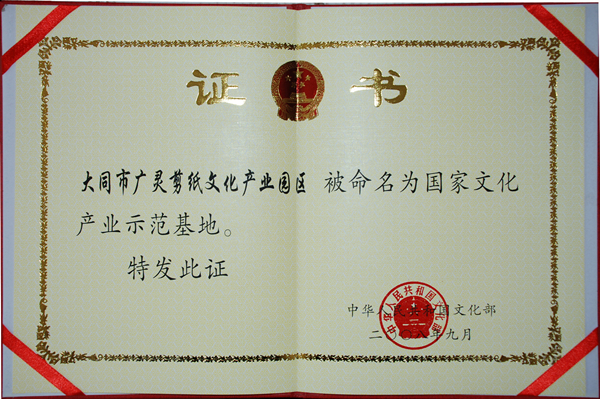 证书
大同市广灵剪纸文化产业园区 被命名为国家文化
产业示范基地。
特发此证
中华人民共和国文化部
二〇〇八年九月
中华人民共和国文化部